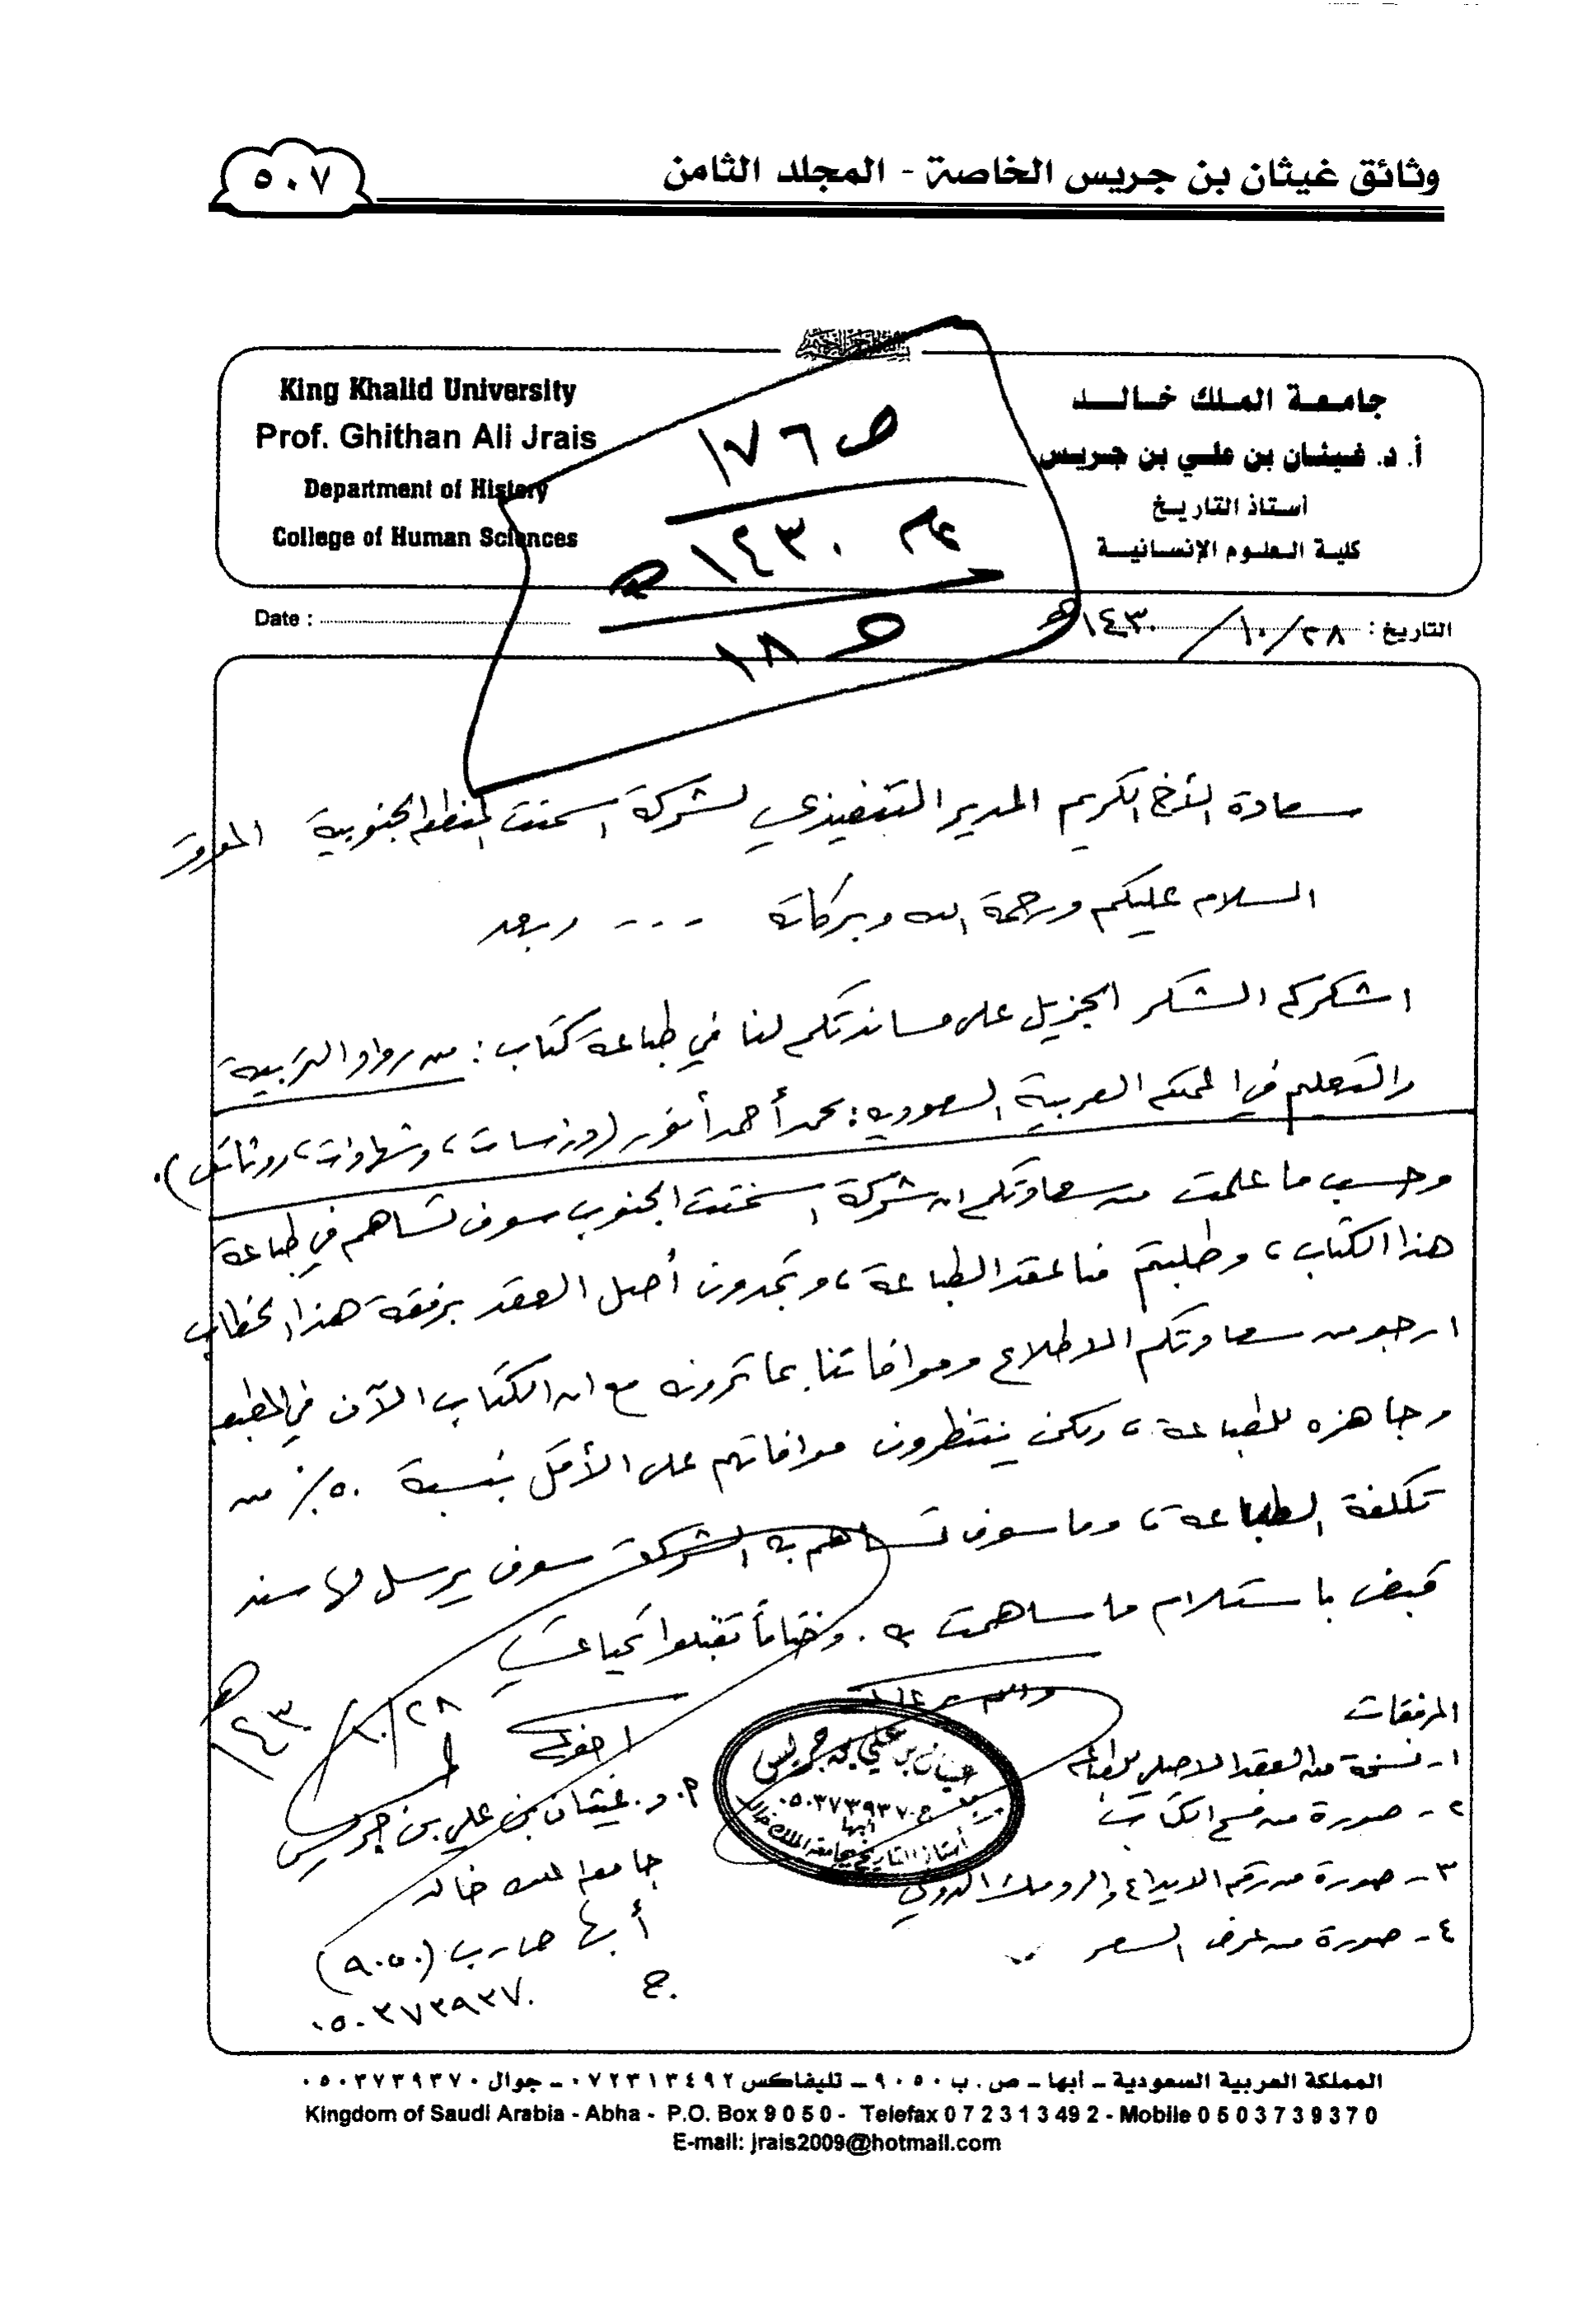 وثائق غيثان بن جريس الخاصة - المجلد الثامن
٥٠٧
جامعة الملك خالد
أ. د. غيثان بن علي بن جريس
أستاذ التاريخ
كلية العلوم الإنسانية
King Khalid University
Prof. Ghithan Ali Jrais
Department of History
College of Human Sciences
ص ١٧٦
١٤٣٠ هـ
ص ١٨
التاريخ : ٢٨/١٠/١٤٣٠هـ
Date :
سعادة الأخ الكريم المدير التنفيذي لشركة اسمنت المنطقة الجنوبية الموقر
السلام عليكم ورحمة الله وبركاته - - - وبعد
اشكركم الشكر الجزيل على مساندتكم لنا في طباعة كتاب : من رواد التربية
والتعليم في المملكة العربية السعودية : محمد أحمد أنور (دراسات، وشهادات، ووثائق).
وحسب ما علمت من سعادتكم ان شركة اسمنت الجنوب سوف تساهم في طباعة
هذا الكتاب، وطلبتم منا عقد الطباعة، وتجدون أصل العقد برفقة هذا الخطاب
ارجو من سعادتكم الاطلاع وموافاتنا بما ترونه مع ان الكتاب الآن في المطبعة
وجاهزه للطباعة، ولكن ينتظرون موافاتهم على الأقل بنسبة ٥٠٪ من
تكلفة الطباعة، وما سوف تساهم به الشركة سوف يرسل لها سند
قبض باستلام ما ساهمت به. وختاماً تقبلوا تحياتي
والله يرعاكم
اخوكم
٢٨/١٠/١٤٣٠هـ
أ. د. غيثان بن علي بن جريس
جامعة الملك خالد
أبها ص.ب (٩٠٥٠)
ج. ٠٥٠٣٧٣٩٣٧٠
غيثان بن علي بن جريس
ج ٠٥٠٣٧٣٩٣٧٠
أبها
أستاذ التاريخ بجامعة الملك خالد
المرفقات
١- نسخة من العقد الاصلي للطباعة
٢- صورة من فسح الكتاب
٣- صورة من رقم الايداع والردمك الدولي
٤- صورة من عرض السعر
المملكة العربية السعودية – أبها – ص. ب ٩٠٥٠ – تليفاكس ٠٧٢٣١٣٤٩٢ – جوال ٠٥٠٣٧٣٩٣٧٠
Kingdom of Saudi Arabia - Abha - P.O. Box 9 0 5 0 - Telefax 0 7 2 3 1 3 4 9 2 - Mobile 0 5 0 3 7 3 9 3 7 0
E-mail: jrais2009@hotmail.com